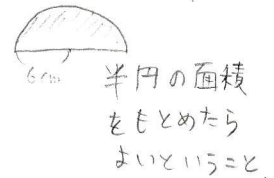 6cm
半円の面積
をもとめたら
よいということ